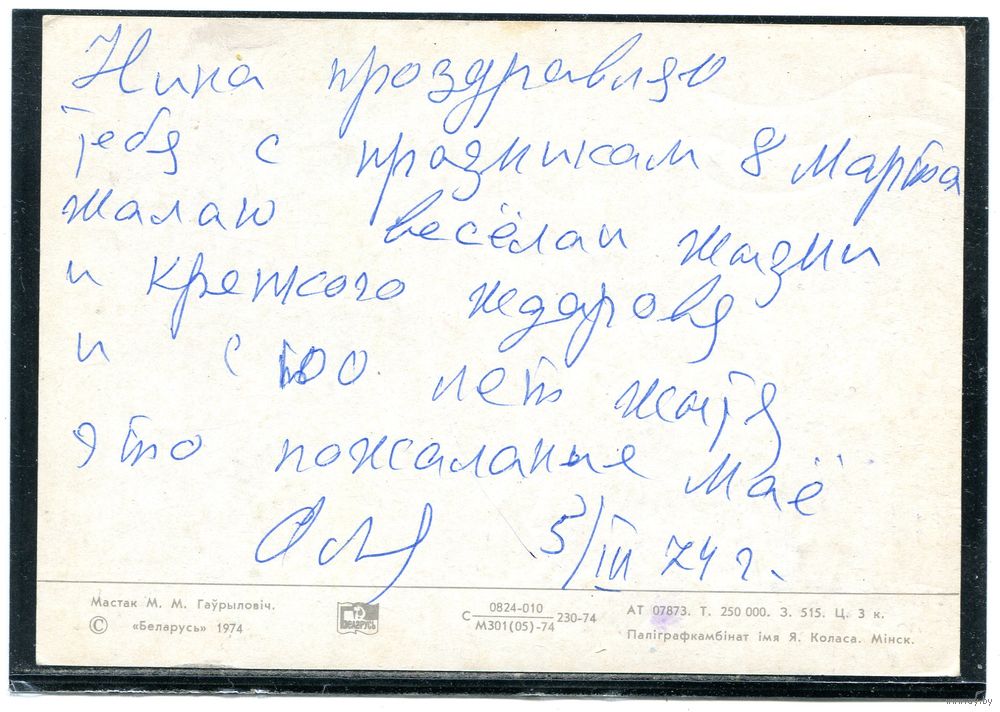 Нина проздравляю
тебя с празникам 8 марта
жалаю весёлай жызни
и крепкого здаровя
и сто лет жытя
это пожалание маё
Оля 5/III 74 г.
Мастак М. М. Гаўрыловіч.
© «Беларусь» 1974
БЕЛАРУСЬ
С 0824-010 230-74
М301(05)-74
АТ 07873. Т. 250 000. З. 515. Ц. 3 к.
Паліграфкамбінат імя Я. Коласа. Мінск.